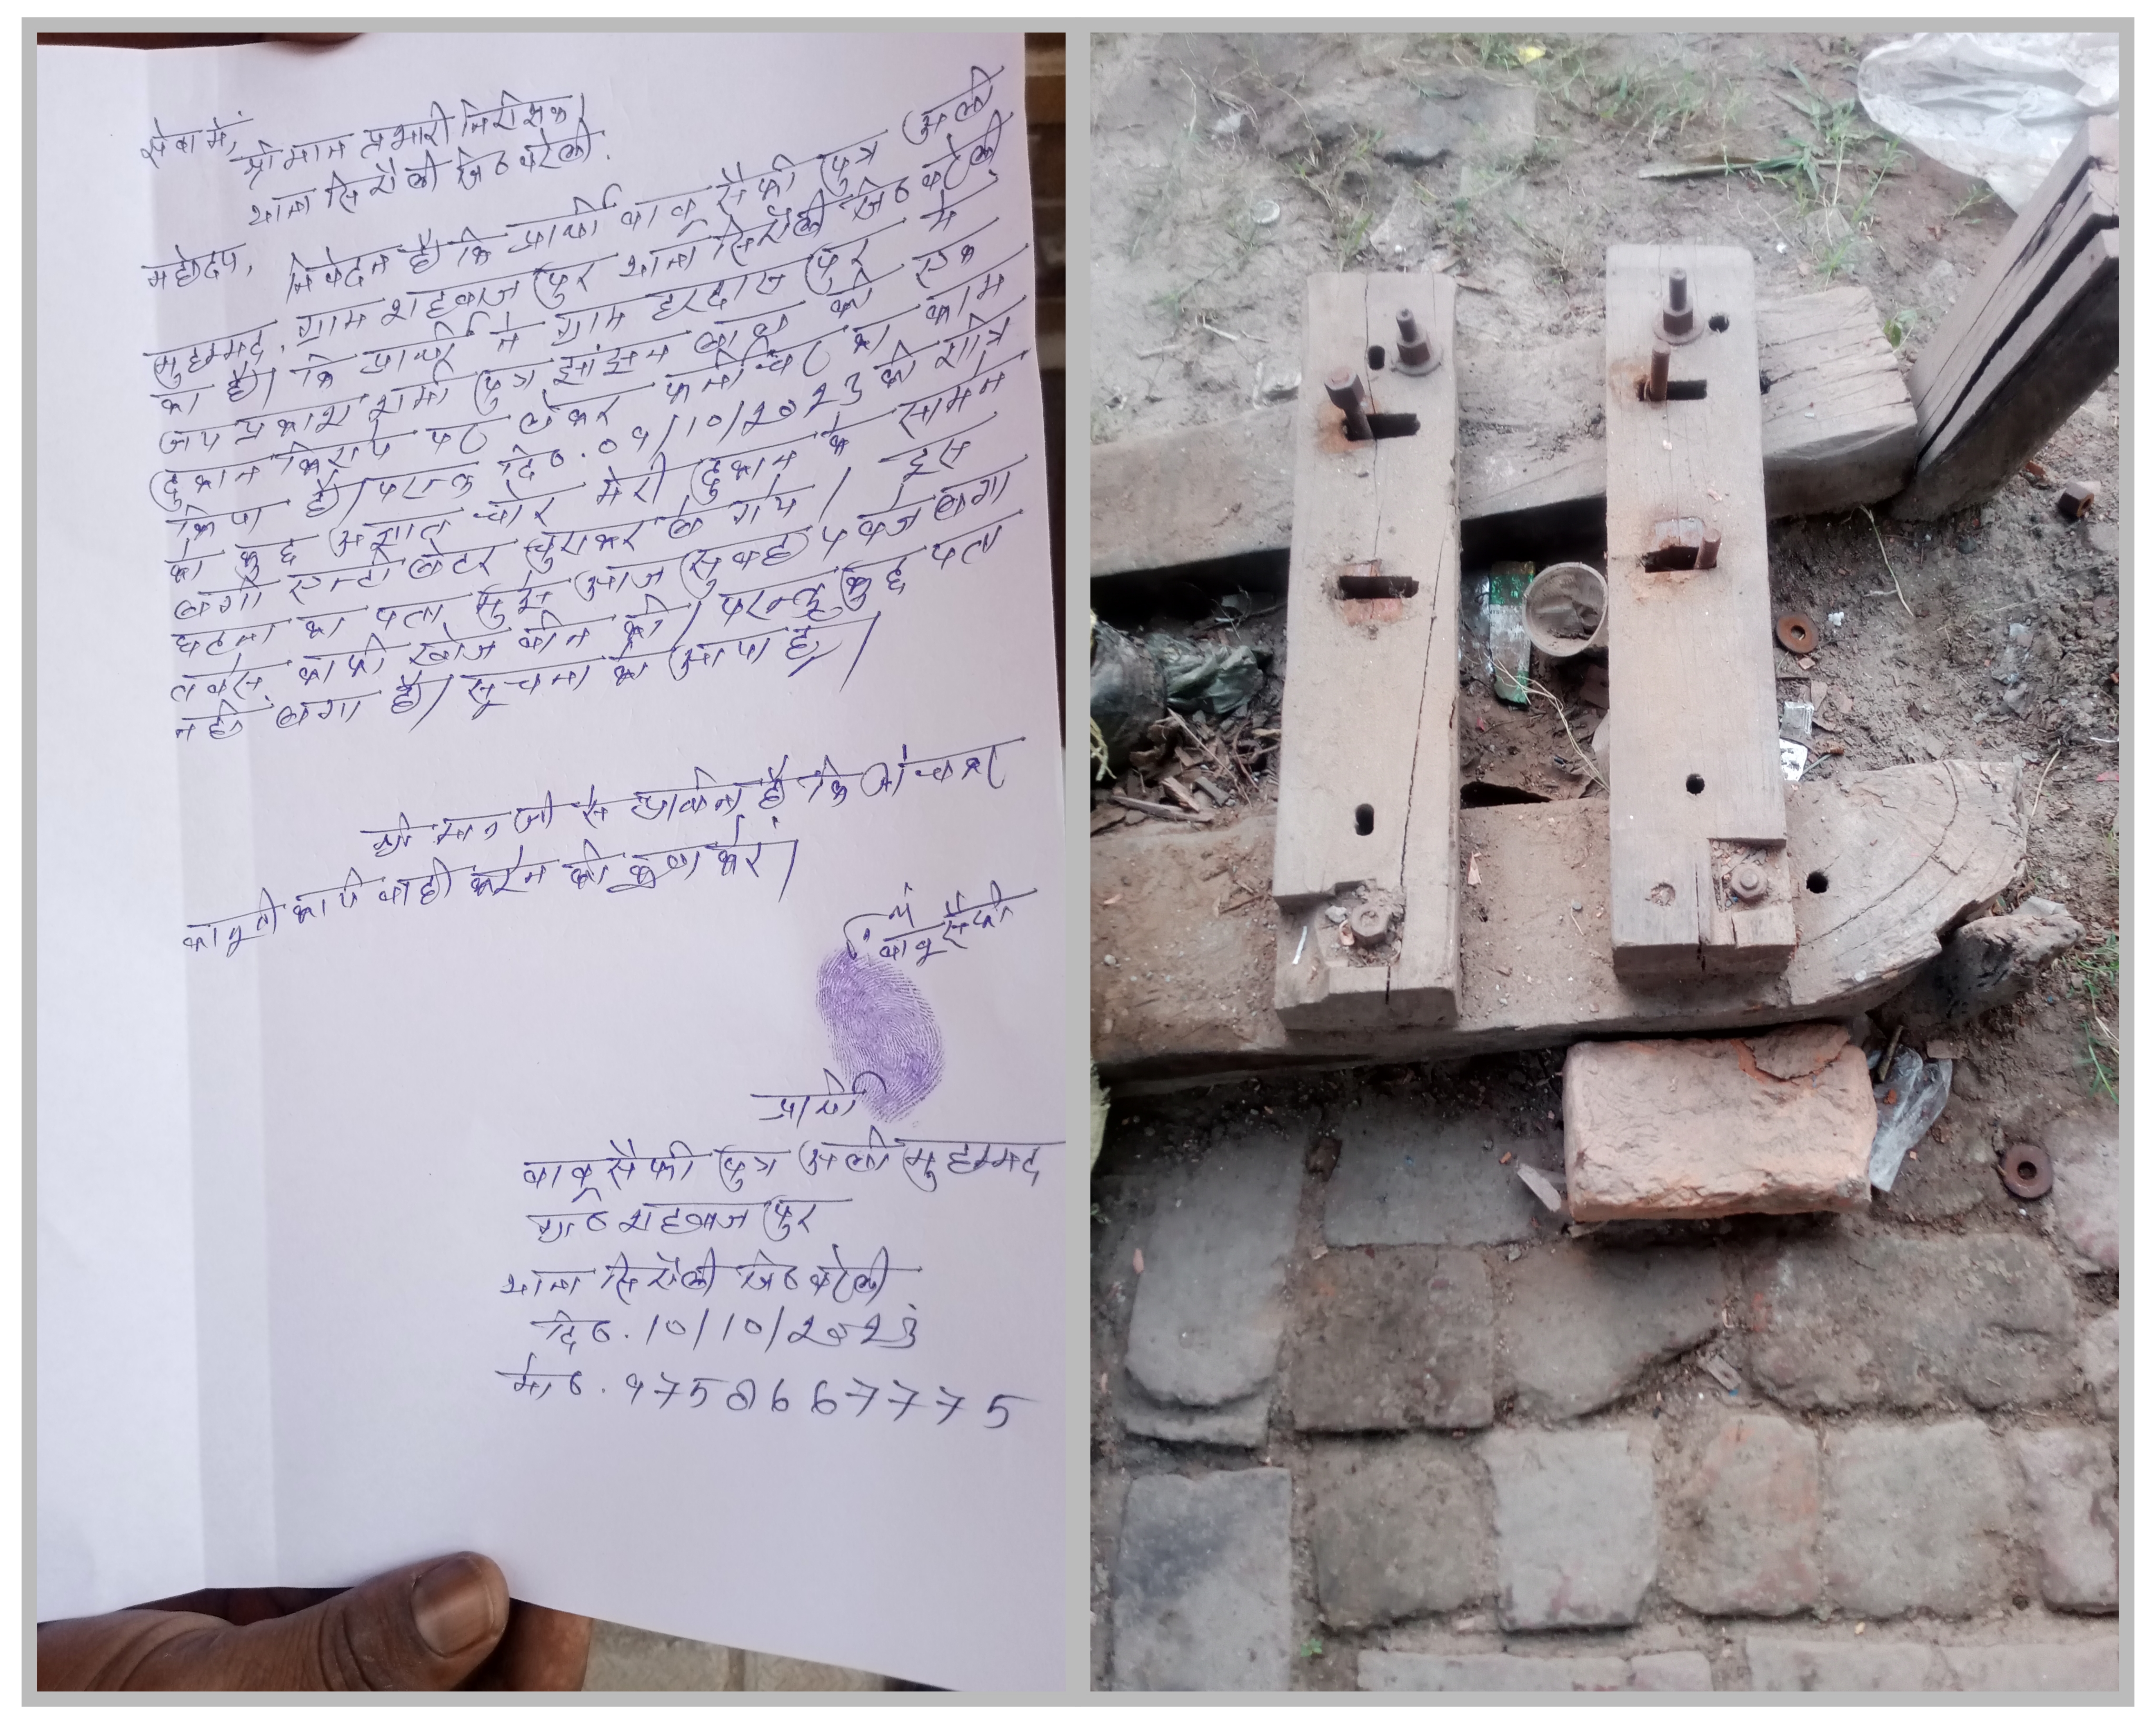 सेवा में,
श्रीमान प्रभारी निरीक्षक
थाना सिरौली जि० बरेली.
महोदय, निवेदन है कि प्रार्थी बाबू सैफी पुत्र अली
मुहम्मद, ग्राम शहबाजपुर थाना सिरौली जि० बरेली
का है। कि प्रार्थी ने ग्राम हरदासपुर में
जय प्रकाश शर्मा पुत्र झांझन लाल की एक
दुकान किराये पर लेकर फर्नीचर का काम
किया है। परन्तु दि०. 09/10/2023 की रात्रि
को कुछ अज्ञात चोर मेरी दुकान के सामने
लगी एल्टीलेटर चुराकर ले गये। इस
घटना का पता मुझे आज सुबह 7 बजे लगा
तबसे काफी खोज बीन की। परन्तु कुछ पता
नहीं लगा है। सूचना को आया है।
श्री मान जी से प्रार्थना है कि जांचकर
कानूनी कार्यवाही करने की कृपा करें।
बाबू सैफी
प्रार्थी
बाबू सैफी पुत्र अली मुहम्मद
ग्रा० शहबाजपुर
थाना सिरौली जि० बरेली
दि०. 10/10/2023
मो०. 9758667775